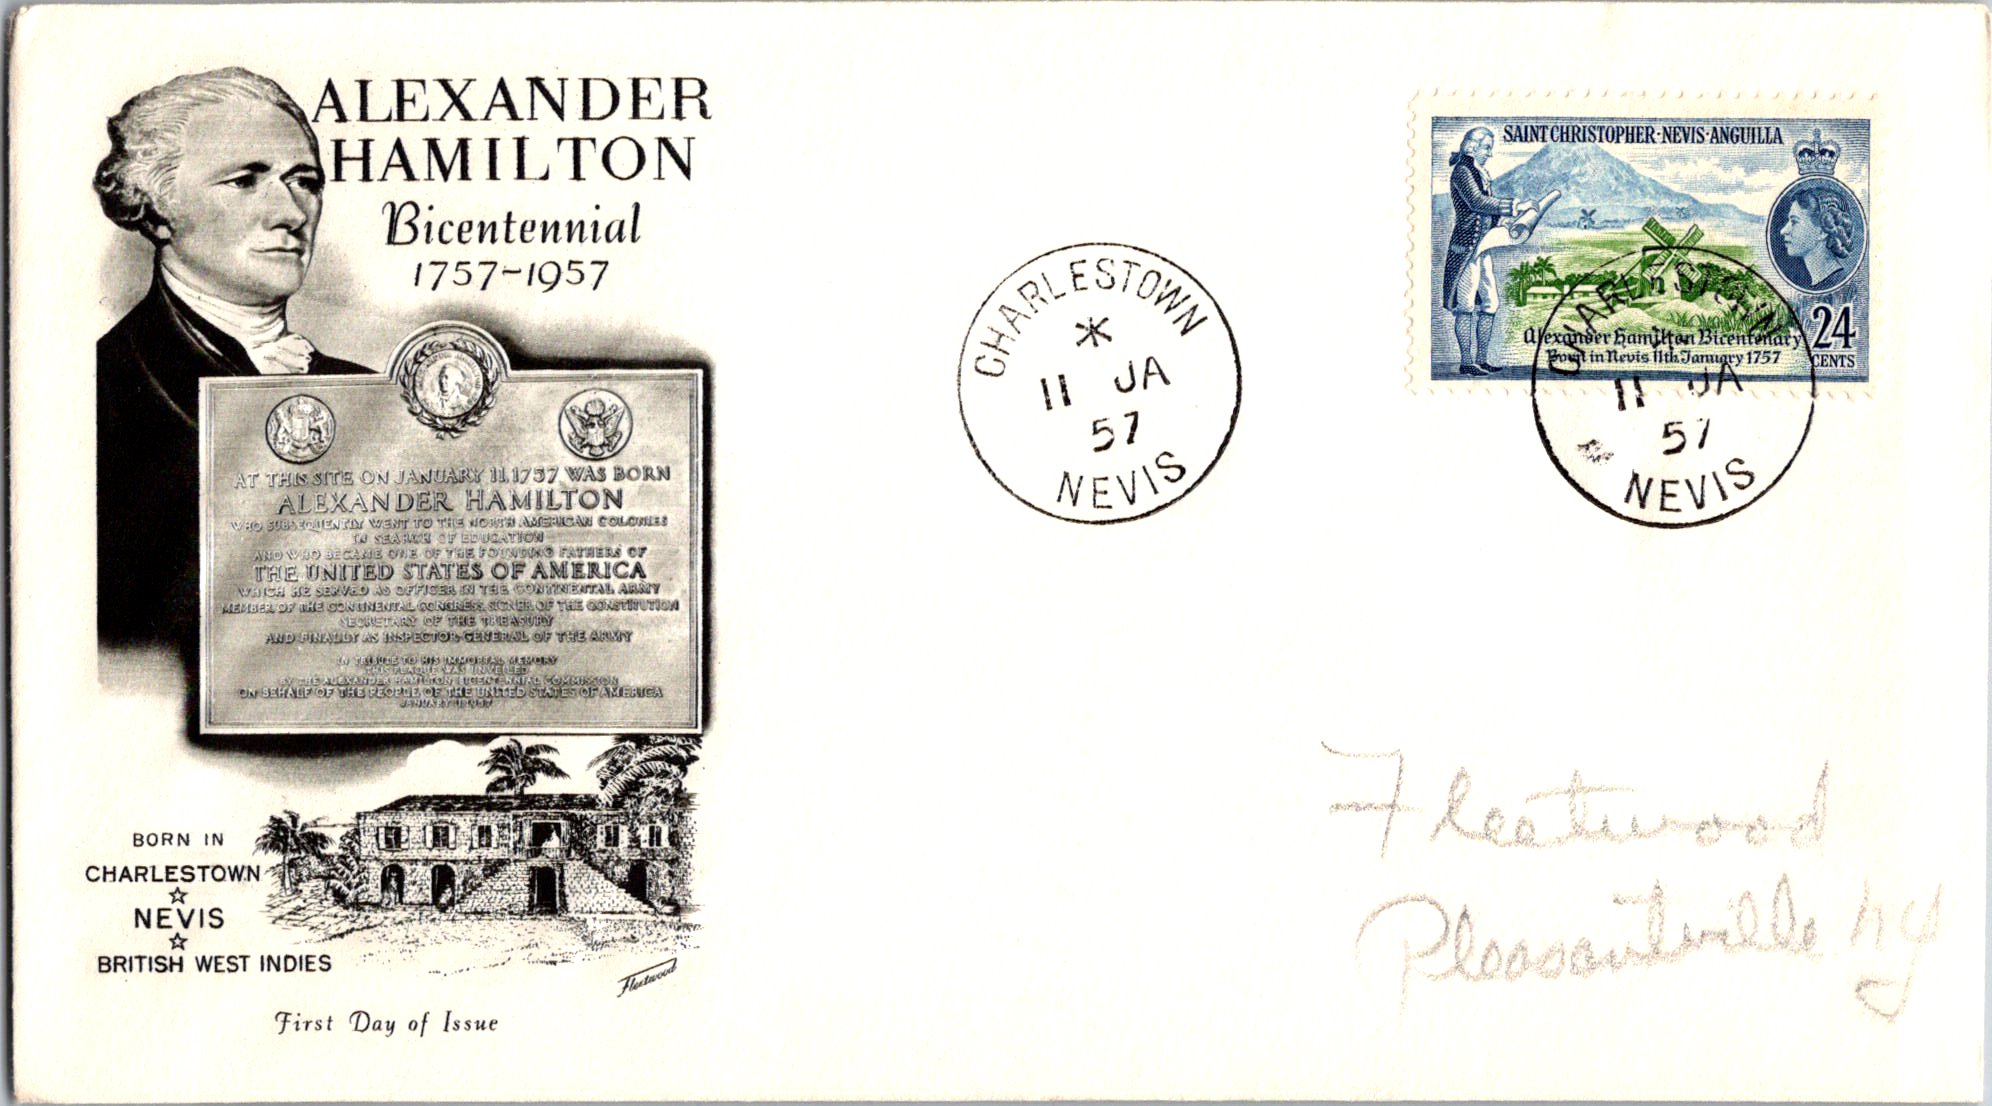 ALEXANDER
HAMILTON
Bicentennial
1757-1957
AT THIS SITE ON JANUARY 11, 1757 WAS BORN
ALEXANDER HAMILTON
WHO SUBSEQUENTLY WENT TO THE NORTH AMERICAN COLONIES
IN SEARCH OF EDUCATION
AND WHO BECAME ONE OF THE FOUNDING FATHERS OF
THE UNITED STATES OF AMERICA
WHICH HE SERVED AS OFFICER IN THE CONTINENTAL ARMY
MEMBER OF THE CONTINENTAL CONGRESS, SIGNER OF THE CONSTITUTION
SECRETARY OF THE TREASURY
AND FINALLY AS INSPECTOR-GENERAL OF THE ARMY
IN TRIBUTE TO HIS IMMORTAL MEMORY
THIS PLAQUE WAS UNVEILED
BY THE ALEXANDER HAMILTON BICENTENNIAL COMMISSION
ON BEHALF OF THE PEOPLE OF THE UNITED STATES OF AMERICA
JANUARY 11, 1957
BORN IN
CHARLESTOWN
NEVIS
BRITISH WEST INDIES
Fleetwood
First Day of Issue
CHARLESTOWN
11 JA
57
NEVIS
SAINT CHRISTOPHER·NEVIS·ANGUILLA
24
CENTS
Alexander Hamilton Bicentenary
Born in Nevis 11th January 1757
CHARLESTOWN
11 JA
57
NEVIS
Fleetwood
Pleasantville NY